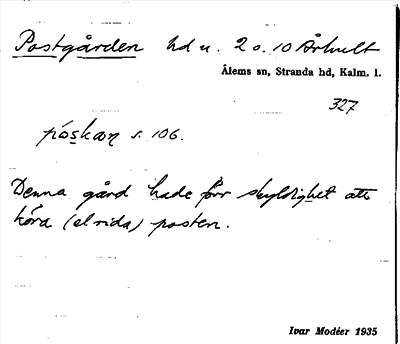 Postgården hd u. 2 o. 10 Århult
Ålems sn, Stranda hd, Kalm. l.
327
s. 106.
Denna gård hade förr skyldighet att
köra (el rida) posten.
Ivar Modéer 1935